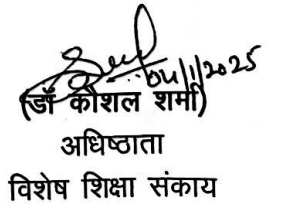 04/1/2025
(डॉ कौशल शर्मा)
अधिष्ठाता
विशेष शिक्षा संकाय